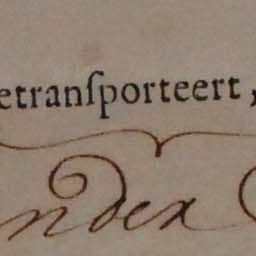 etranſporteert,
ndex